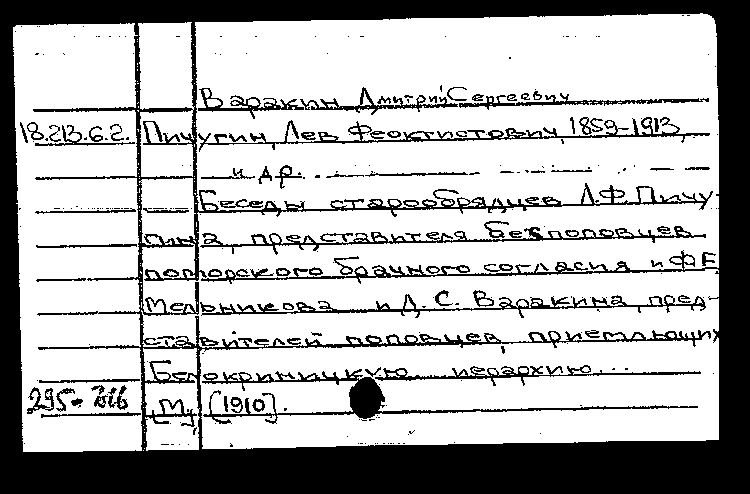 Варакин, Дмитрий Сергеевич
18.213.6.2. Пичугин, Лев Феоктистович, 1859-1913,
и др.
Беседы старообрядцев Л.Ф. Пичу-
гина, представителя беспоповцев
поморского брачного согласия и Ф.Е.
Мельникова и Д. С. Варакина, пред-
ставителей поповцев, приемлющих
Белокриницкую иерархию...
295- [М], [1910].